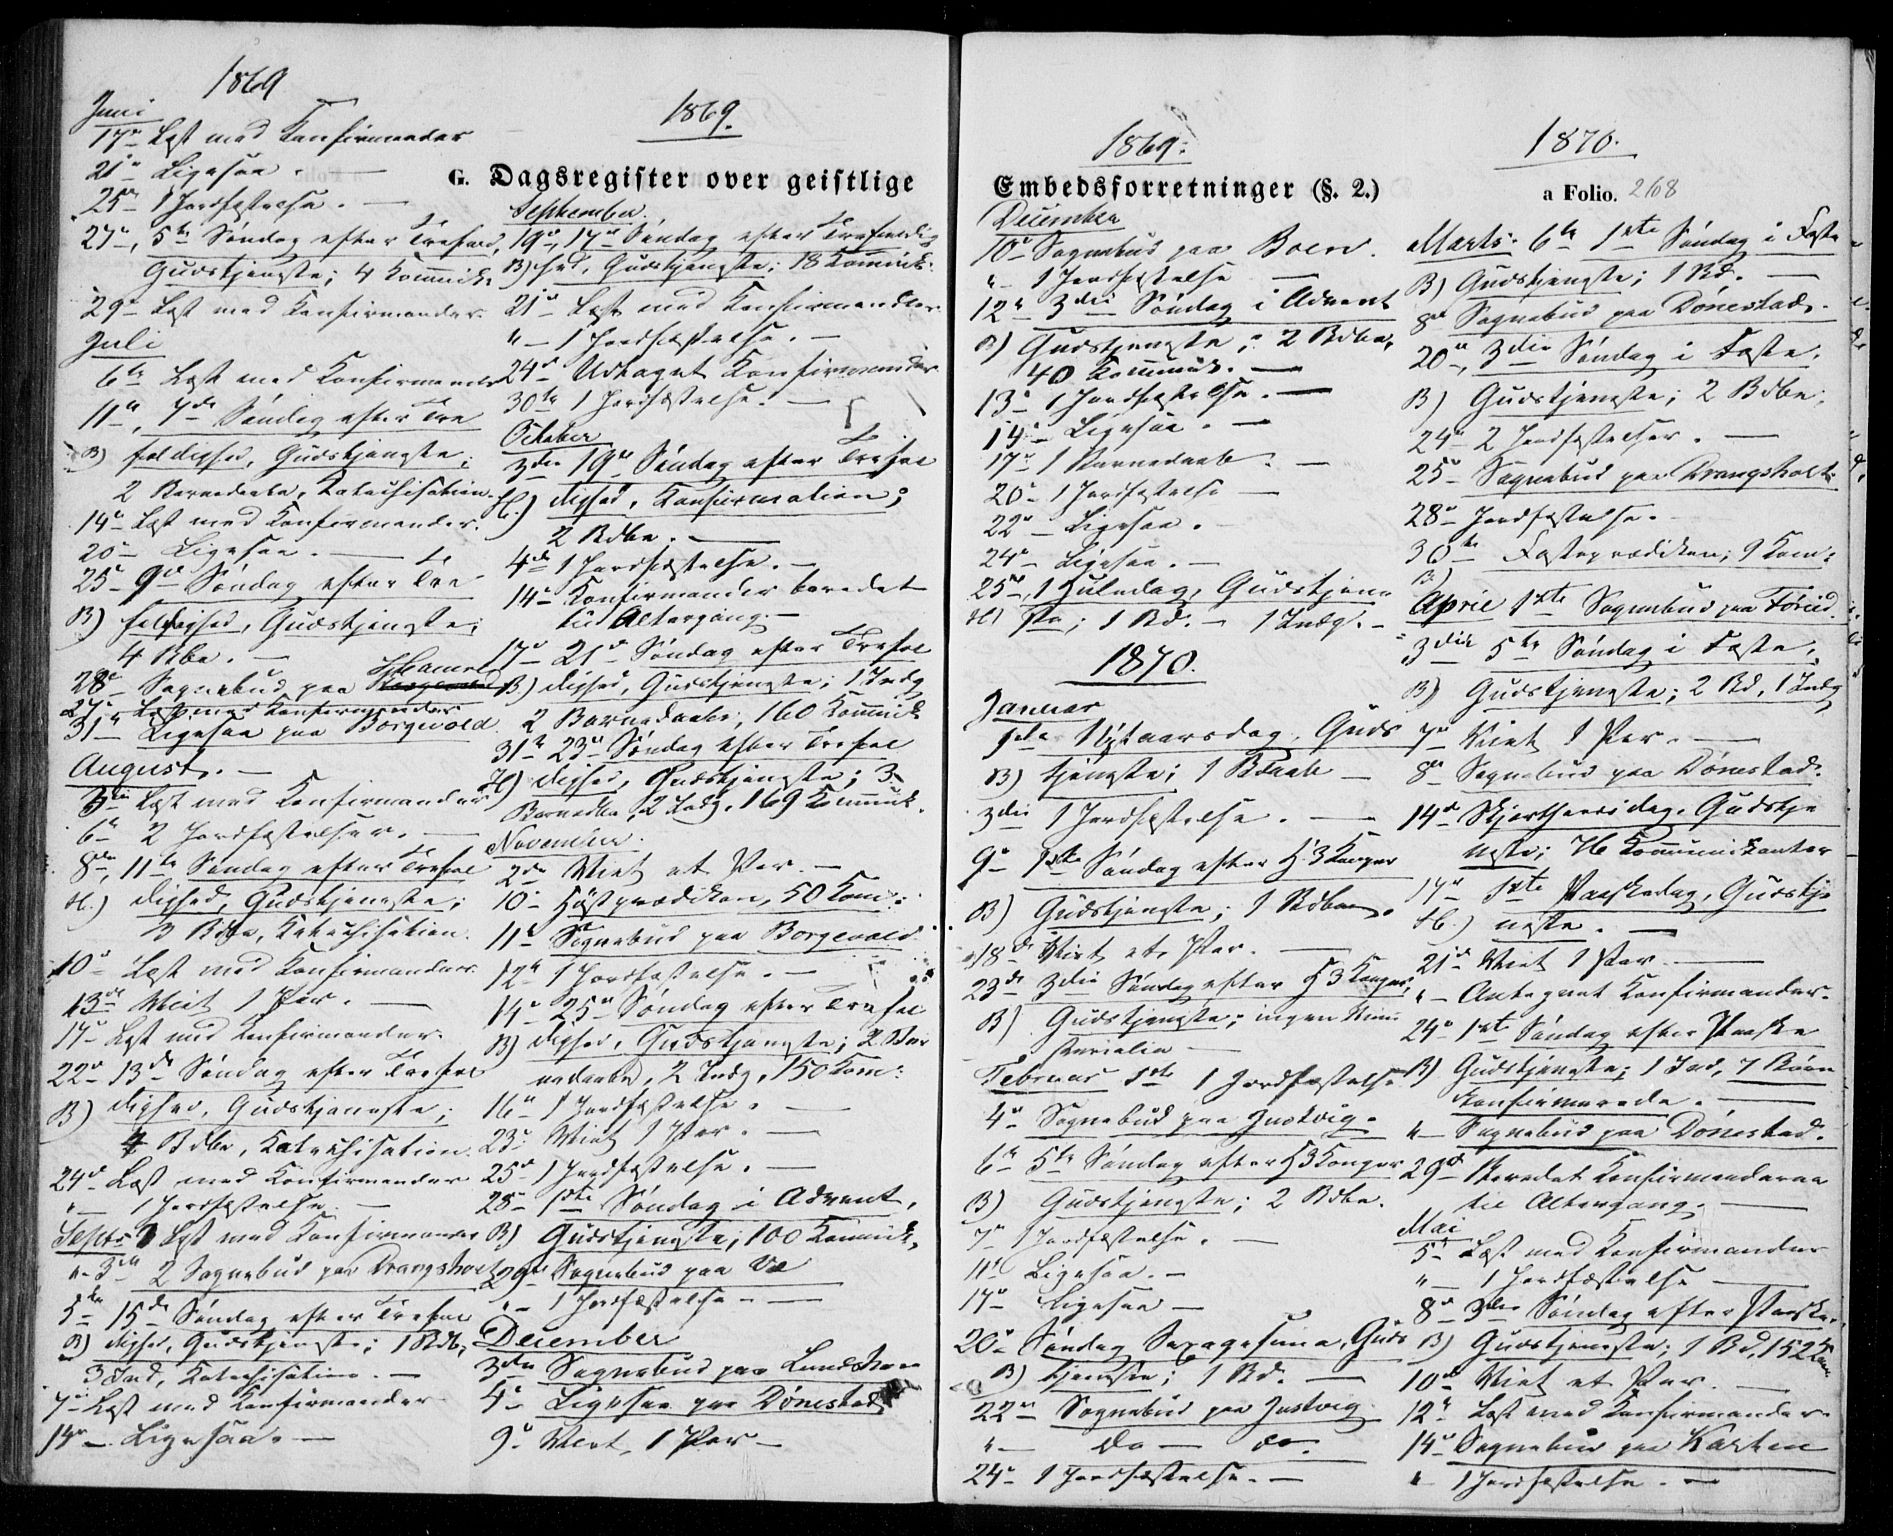 1869
Juni
17de Læst med Konfirmander
21de Ligesaa. —
25de 1 Jordfæstelse. —
27de, 5te Søndag efter Trefold,
Gudstjeneste; 4 Kommunik.
29de Læst med Konfirmander.
Juli
6te Læst med Konfirmander
11te, 7de Søndag efter Tre
B) foldighed, Gudstjeneste;
2 Barnedaabe, Katechisation.
14de Læst med Konfirmander.
20de Ligesaa. —
25de 9de Søndag efter Tre
B) foldighed, Gudstjeneste;
4 Bdbe. —
28de Sognebud paa Hamre
27de Læst med Konfirmander
31te Ligesaa paa Borgevold
August. —
3die Læst med Konfirmander
6te 2 Jordfæstelser. —
8de, 11te Søndag efter Trefol
H.) dighed, Gudstjeneste;
3 Bdbe, Katechisation.
10de Læst med Konfirmander.
13de Viet 1 Par. —
17de Læst med Konfirmander.
22de 13de Søndag efter Trefol
B) dighed, Gudstjeneste;
4 Bdbe, Katechisation.
24de Læst med Konfirmander
" — 1 Jordfæstelse. —
Septbr Læst med Konfirmander
" 3die 2 Sognebud paa Drangsholt
5te 15de Søndag efter Trefol
B) dighed, Gudstjeneste; 1 Bdb,
3 Ind, Katechisation. —
7de Læst med Konfirmander
14de Ligesaa. —
1869.
G. Dagsregister over geistlige
September.
19de, 17de Søndag efter Trefoldig
B) hed, Gudstjeneste; 18 Kommunik.
21de Læst med Konfirmander.
" — 1 Jordfæstelse. —
24de Udtaget Konfirmander
30te 1 Jordfæstelse. —
October
3die 19de Søndag efter Trefol
H.) dighed, Konfirmation;
2 Bdbe. —
4de 1 Jordfæstelse. —
14de Konfirmander beredet
til Altergang. —
17de 21de Søndag efter Trefol
B) dighed, Gudstjeneste; 1 Indg
2 Barnedaabe, 160 Kommunik
31te 23de Søndag efter Trefol
H) dighed, Gudstjeneste; 3
Barnedbe, 2 Indg. 169 Kommunik.
November.
2den Viet et Par. —
10de Høstprædiken, 50 Kom:
11te Sognebud paa Borgevold
12te 1 Jordfæstelse. —
14de 25de Søndag efter Trefol
B) dighed, Gudstjeneste; 2 Bar
nedaabe, 2 Indg, 150 Kom:
16de 1 Jordfæstelse. —
23de Viet 1 Par. —
25de 1 Jordfæstelse. —
28de 1ste Søndag i Advent,
B) Gudstjeneste; 100 Kommunik,
29de Sognebud paa Ve
" — 1 Jordfæstelse —
December
3die Sognebud paa
4de Ligesaa paa Dønestad
9de Viet 1 Par —
1869.
Embedsforretninger (§. 2.)
December
10de Sognebud paa Boen.
" — 1 Jordfæstelse —
12te 3die Søndag i Advent
B) Gudstjeneste; 2 Bdbe,
40 Kommunik. —
13de 1 Jordfæstelse. —
14de Ligesaa. —
17de 1 Barnedaab. —
20de 1 Jordfæstelse —
22de Ligesaa. —
24de Ligesaa. —
25de, 1 Juledag, Gudstjene
H) ste; 1 Bd. — 1 Indg. —
1870.
Januar
1ste Nytaarsdag, Guds
B) tjeneste; 1 Bdaab —
3die 1 Jordfæstelse. —
9de 1ste Søndag efter H3Konger
B) Gudstjeneste; 1 Bdbe.
18de Viet et Par. —
23de 3die Søndag efter H3Konger,
B) Gudstjeneste; ingen Mini
sterialia —
Februar 1ste 1 Jordfæstelse
4de Sognebud paa Justvig.
6te 5te Søndag efter H3Konger
B) Gudstjeneste; 2 Bdbe.
7de 1 Jordfæstelse. —
11te Ligesaa. —
17de Ligesaa —
20de Søndag Sexagesima, Guds
B) tjeneste; 1 Bd. —
22de Sognebud paa Justvig
" — do — do.
24de 1 Jordfæstelse. —
1870.
a Folio. 268
Marts. 6te 1ste Søndag i Faste
B) Gudstjeneste; 1 Bd. —
8de Sognebud paa Dønestad.
20de, 3die Søndag i Faste,
B) Gudstjeneste; 2 Bdbe,
24de 2 Jordfæstelser. —
25de Sognebud paa Drangsholt
28de Jordfæstelse. —
30te Fasteprædiken; 9 Kom:
B)
April 1ste Sognebud paa
3die 5te Søndag i Faste,
B) Gudstjeneste; 2 Bd, 1 Indg
7de Viet 1 Par. —
8de Sognebud paa Dønestad.
14de Skjærthorsdag, Gudstje
neste; 76 Kommunikanter
17de 1ste Paaskedag, Gudstje
H.) neste. —
21de Viet 1 Par. —
" — Antegnet Konfirmander.
24de 1ste Søndag efter Paaske
B) Gudstjeneste; 1 Ind, 7 Børn
konfirmerede. —
" — Sognebud paa Dønestad.
29de Beredet Konfirmanderne
til Altergang. —
Mai
5te Læst med Konfirmander
" — 1 Jordfæstelse —
8de 3die Søndag efter Paaske,
B) Gudstjeneste; 1 Bd, 152 Kom
10de Viet et Par. —
12te Læst med Konfirmander.
14de Sognebud paa Karsten
" 1 Jordfæstelse. —